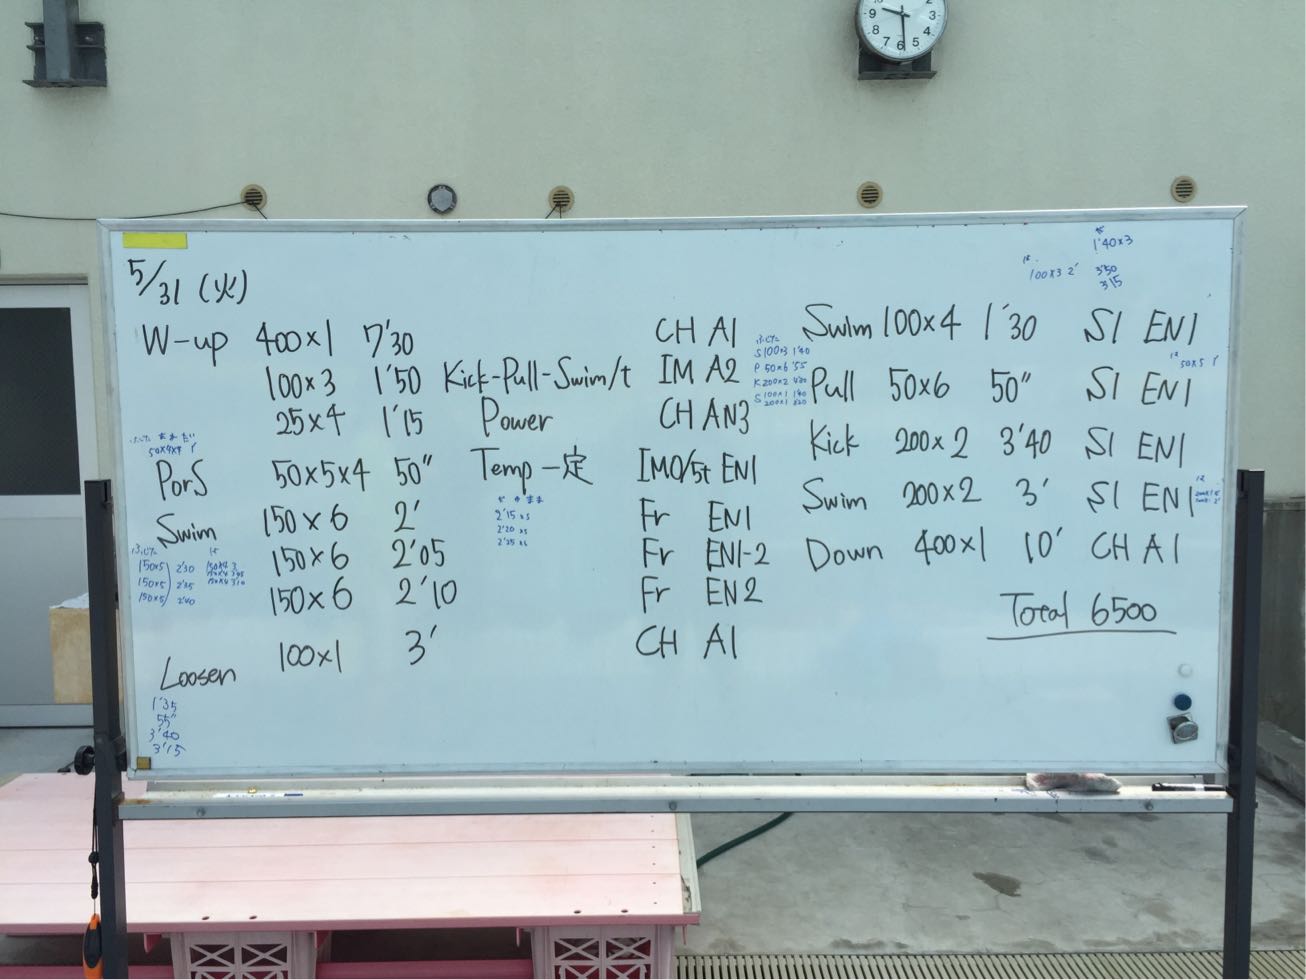 5/31 (火)
W-up 400×1 7'30 CH A1
100×3 1'50 Kick-Pull-Swim/t IM A2
25×4 1'15 Power CH AN3
50×4×4 1'
PorS 50×5×4 50" Temp一定 IMO/St EN1
Swim 150×6 2' Fr EN1
150×6 2'05 Fr EN1-2
150×6 2'10 Fr EN2
2'15×5
2'20×5
2'25×6
150×5 2'30
150×5 2'35
150×5 2'40
Loosen 100×1 3' CH A1
1'35
55"
3'40
3'15
1'40×3
100×3 2' 3'50
3'15
Swim 100×4 1'30 S1 EN1
S100×3 1'40
P 50×6 '55
K200×2
S 100×1 1'40
200×1
50×5 1'
Pull 50×6 50" S1 EN1
Kick 200×2 3'40 S1 EN1
Swim 200×2 3' S1 EN1
Down 400×1 10' CH A1
Total 6500
9 3
8 4
7 6 5